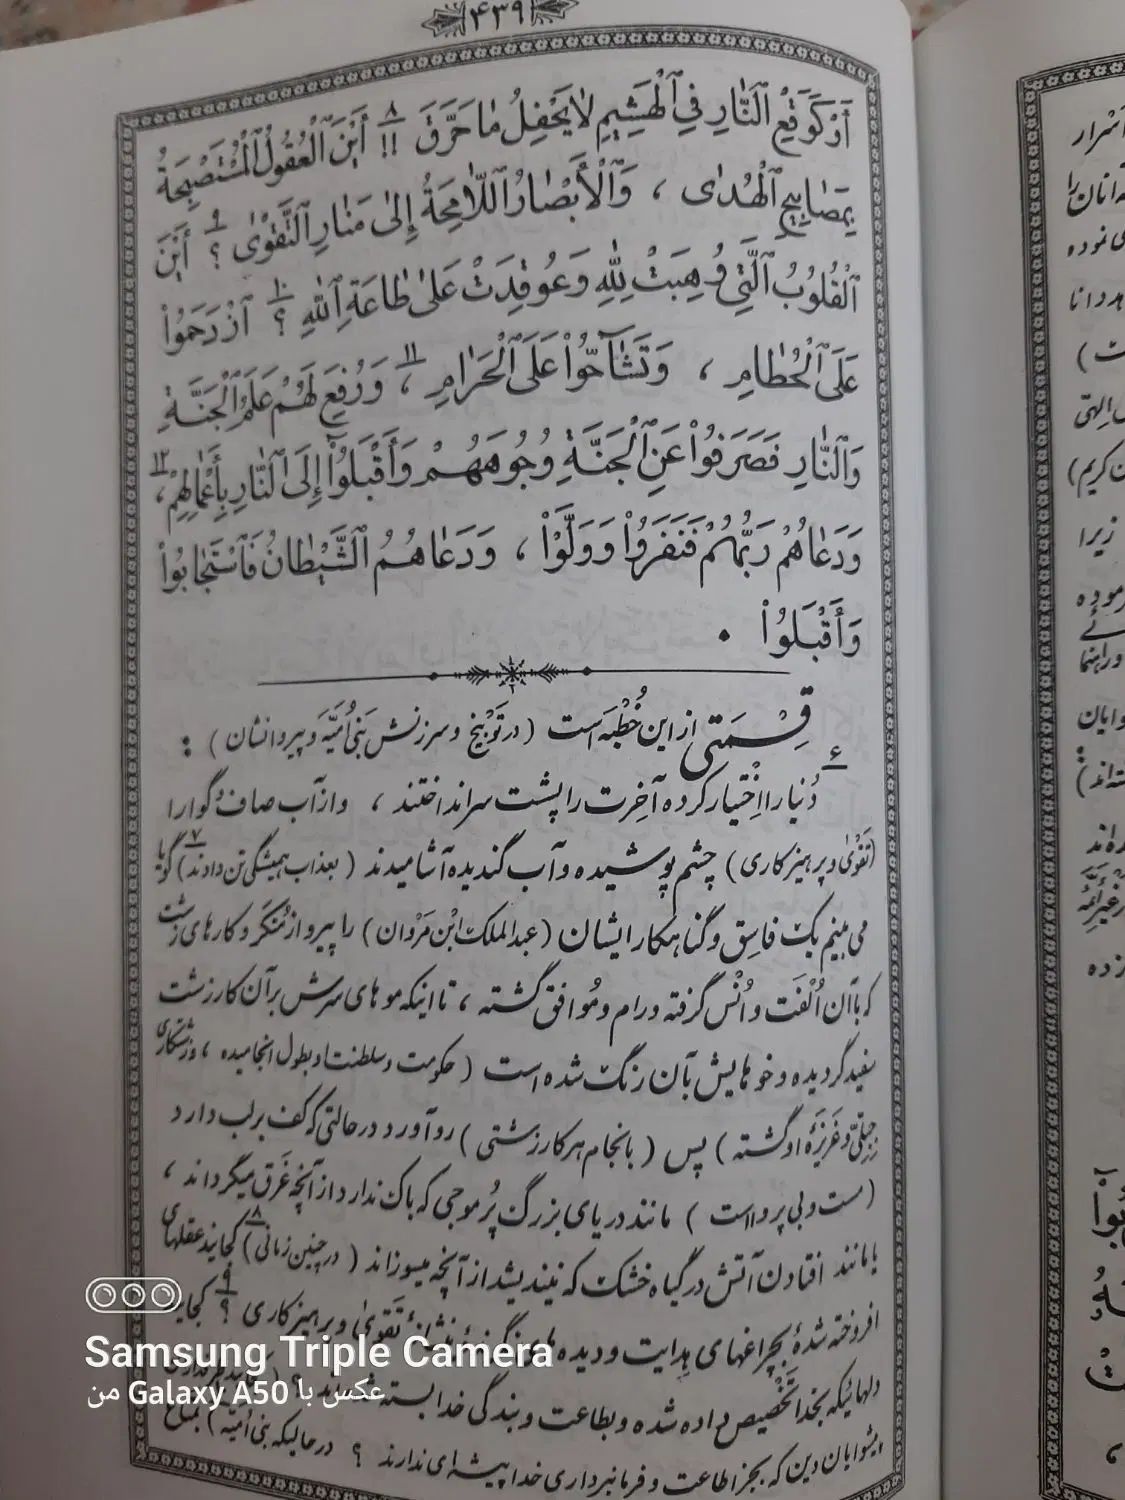 ﴿۴۳۹﴾
أَوْ كَوَقْعِ ٱلنَّارِ فِي ٱلْهَشِيمِ لَا يَحْفِلُ مَا حَرَّقَ !! ۸ أَيْنَ ٱلْعُقُولُ ٱلْمُسْتَصْبِحَةُ
بِمَصَابِيحِ ٱلْهُدَىٰ ، وَٱلْأَبْصَارُ ٱللَّامِحَةُ إِلَىٰ مَنَارِ ٱلتَّقْوَىٰ ؟ ۹ أَيْنَ
ٱلْقُلُوبُ ٱلَّتِي وُهِبَتْ لِلّٰهِ وَعُوقِدَتْ عَلَىٰ طَاعَةِ ٱللّٰهِ ؟ ۱۰ ٱزْدَحَمُوا۟
عَلَى ٱلْحُطَامِ ، وَتَشَآحُّوا۟ عَلَى ٱلْحَرَامِ ، ۱۱ وَرُفِعَ لَهُمْ عَلَمُ ٱلْجَنَّةِ
وَٱلنَّارِ فَصَرَفُوا۟ عَنِ ٱلْجَنَّةِ وُجُوهَهُمْ وَأَقْبَلُوٓا۟ إِلَى ٱلنَّارِ بِأَعْمَالِهِمْ ، ۱۲
وَدَعَاهُمْ رَبُّهُمْ فَنَفَرُوا۟ وَوَلَّوْا۟ ، وَدَعَاهُمُ ٱلشَّيْطَانُ فَٱسْتَجَابُوا۟
وَأَقْبَلُوا۟ .
قِسْمَتی از این خُطْبَه است (در تَوْبیخ و سرزنش بَنی اُمَیَّه و پیروانشان) :
۶ دُنْیا را اِخْتیار کرده آخِرت را پشت سر انداختند ، و از آب صاف و گوارا
(تَقْوىٰ و پرهیزکاری) چشم پوشیده و آب گندیده آشامیدند (بعذاب همیشگی تن دادند) ۷ گویا
می بینم یک فاسِق و گناهکار ایشان (عبدالملک ابْن مَرْوان) را پیرو از مُنْکَر و کارهای زشت
که با آن اُلْفَت و اُنْس گرفته و رام و مُوافق گشته ، تا اینکه موهای سرش بر آن کار زشت
سفید گردیده و خوهایش بآن رنگ شده است (حکومت و سلطنت او بطول انجامیده ، و زشتکاری
جِبِلّیّ و غَریزَهٔ او گشته) پس (بانجام هر کار زشتی) رو آورد در حالتی که کف بر لب دارد
(مست و بی پروا است) مانند دریای بزرگ پُر موجی که باک ندارد از آنچه غَرق میگرداند ،
یا مانند افتادن آتش در گیاه خشک که نیندیشد از آنچه میسوزاند ۸ (در چنین زمانی) کجایند عقلهای
افروخته شدهٔ بچراغهای هِدایت و دیده های نگرنده بنشانهٔ تَقْوىٰ و پرهیزکاری ؟ ۹
دلهائیکه بخدا تَخْصیص داده شده و بطاعت و بندگی خدا بسته شده
پیشوایان دین که بجز اطاعت و فرمانبرداری خدا پیشه ای ندارند ؟ در حالیکه بنی اُمَیَّه)
Samsung Triple Camera
عکس با Galaxy A50 من
اسرار
آنان را
نموده
الهی
کریم)
زیرا